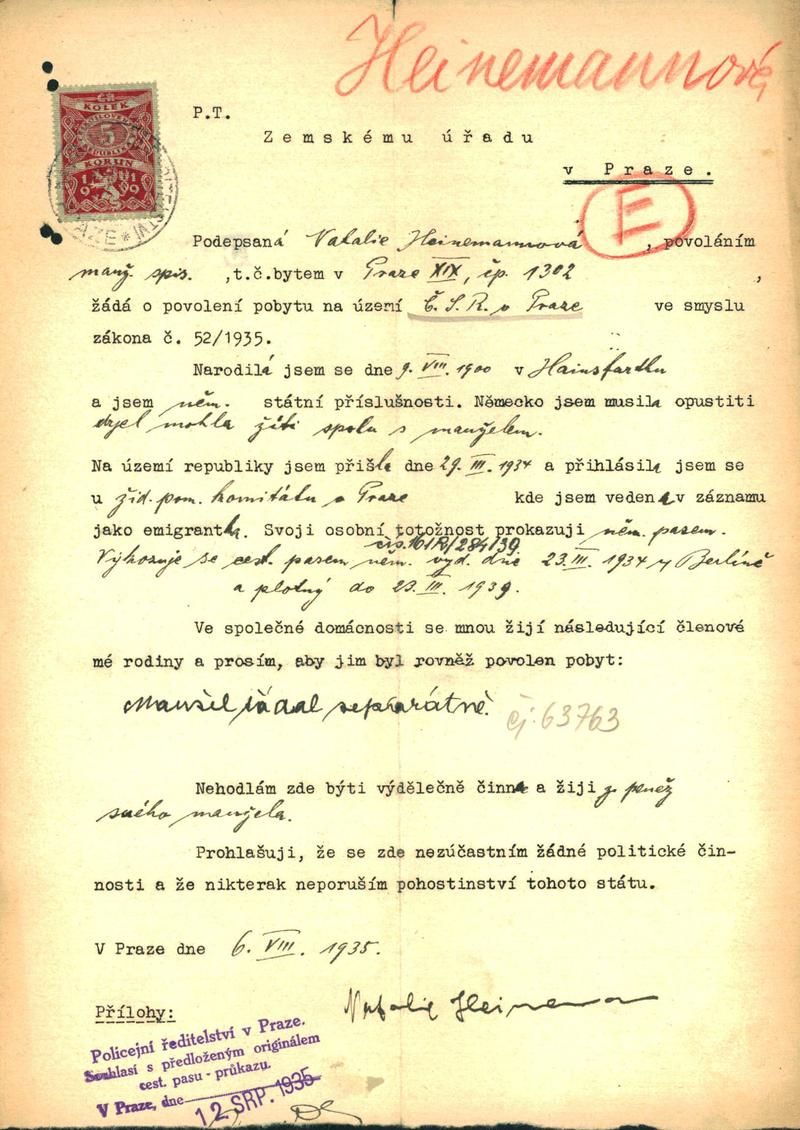 Heinemannová
KOLEK
5
KORUN
19 19
P.T.
Zemskému úřadu
v Praze.
E
Podepsaná Natalie Heinemannová, povoláním
manž. spis. ,t.č.bytem v Praze XIX, čp. 1302 ,
žádá o povolení pobytu na území Č.S.R. v Praze ve smyslu
zákona č. 52/1935.
Narodila jsem se dne 9. VIII. 1900 v Hainsfarthu
a jsem něm. státní příslušnosti. Německo jsem musila opustiti
abych mohla žíti spolu s manželem.
Na území republiky jsem přišla dne 29. III. 1934 a přihlásila jsem se
u žid. pom. komitétu v Praze kde jsem vedena v záznamu
jako emigrantka. Svoji osobní totožnost prokazuji něm. pasem.
čís. 161R/284/39
Vykazuje se cest. pasem něm. vyd. dne 23. III. 1934 v Berlíně
a platný do 23. III. 1939.
Ve společné domácnosti se mnou žijí následující členové
mé rodiny a prosím, aby jim byl rovněž povolen pobyt:
Manžel žádal separátně.
čj. 63763
Nehodlám zde býti výdělečně činna a žiji z peněz
svého manžela.
Prohlašuji, že se zde nezúčastním žádné politické čin-
nosti a že nikterak neporuším pohostinství tohoto státu.
V Praze dne 6. VIII. 1935.
Natalie Heinemann
Přílohy:
Policejní ředitelství v Praze.
Souhlasí s předloženým originálem
cest. pasu - průkazu.
V Praze, dne
12 SRP. 1935